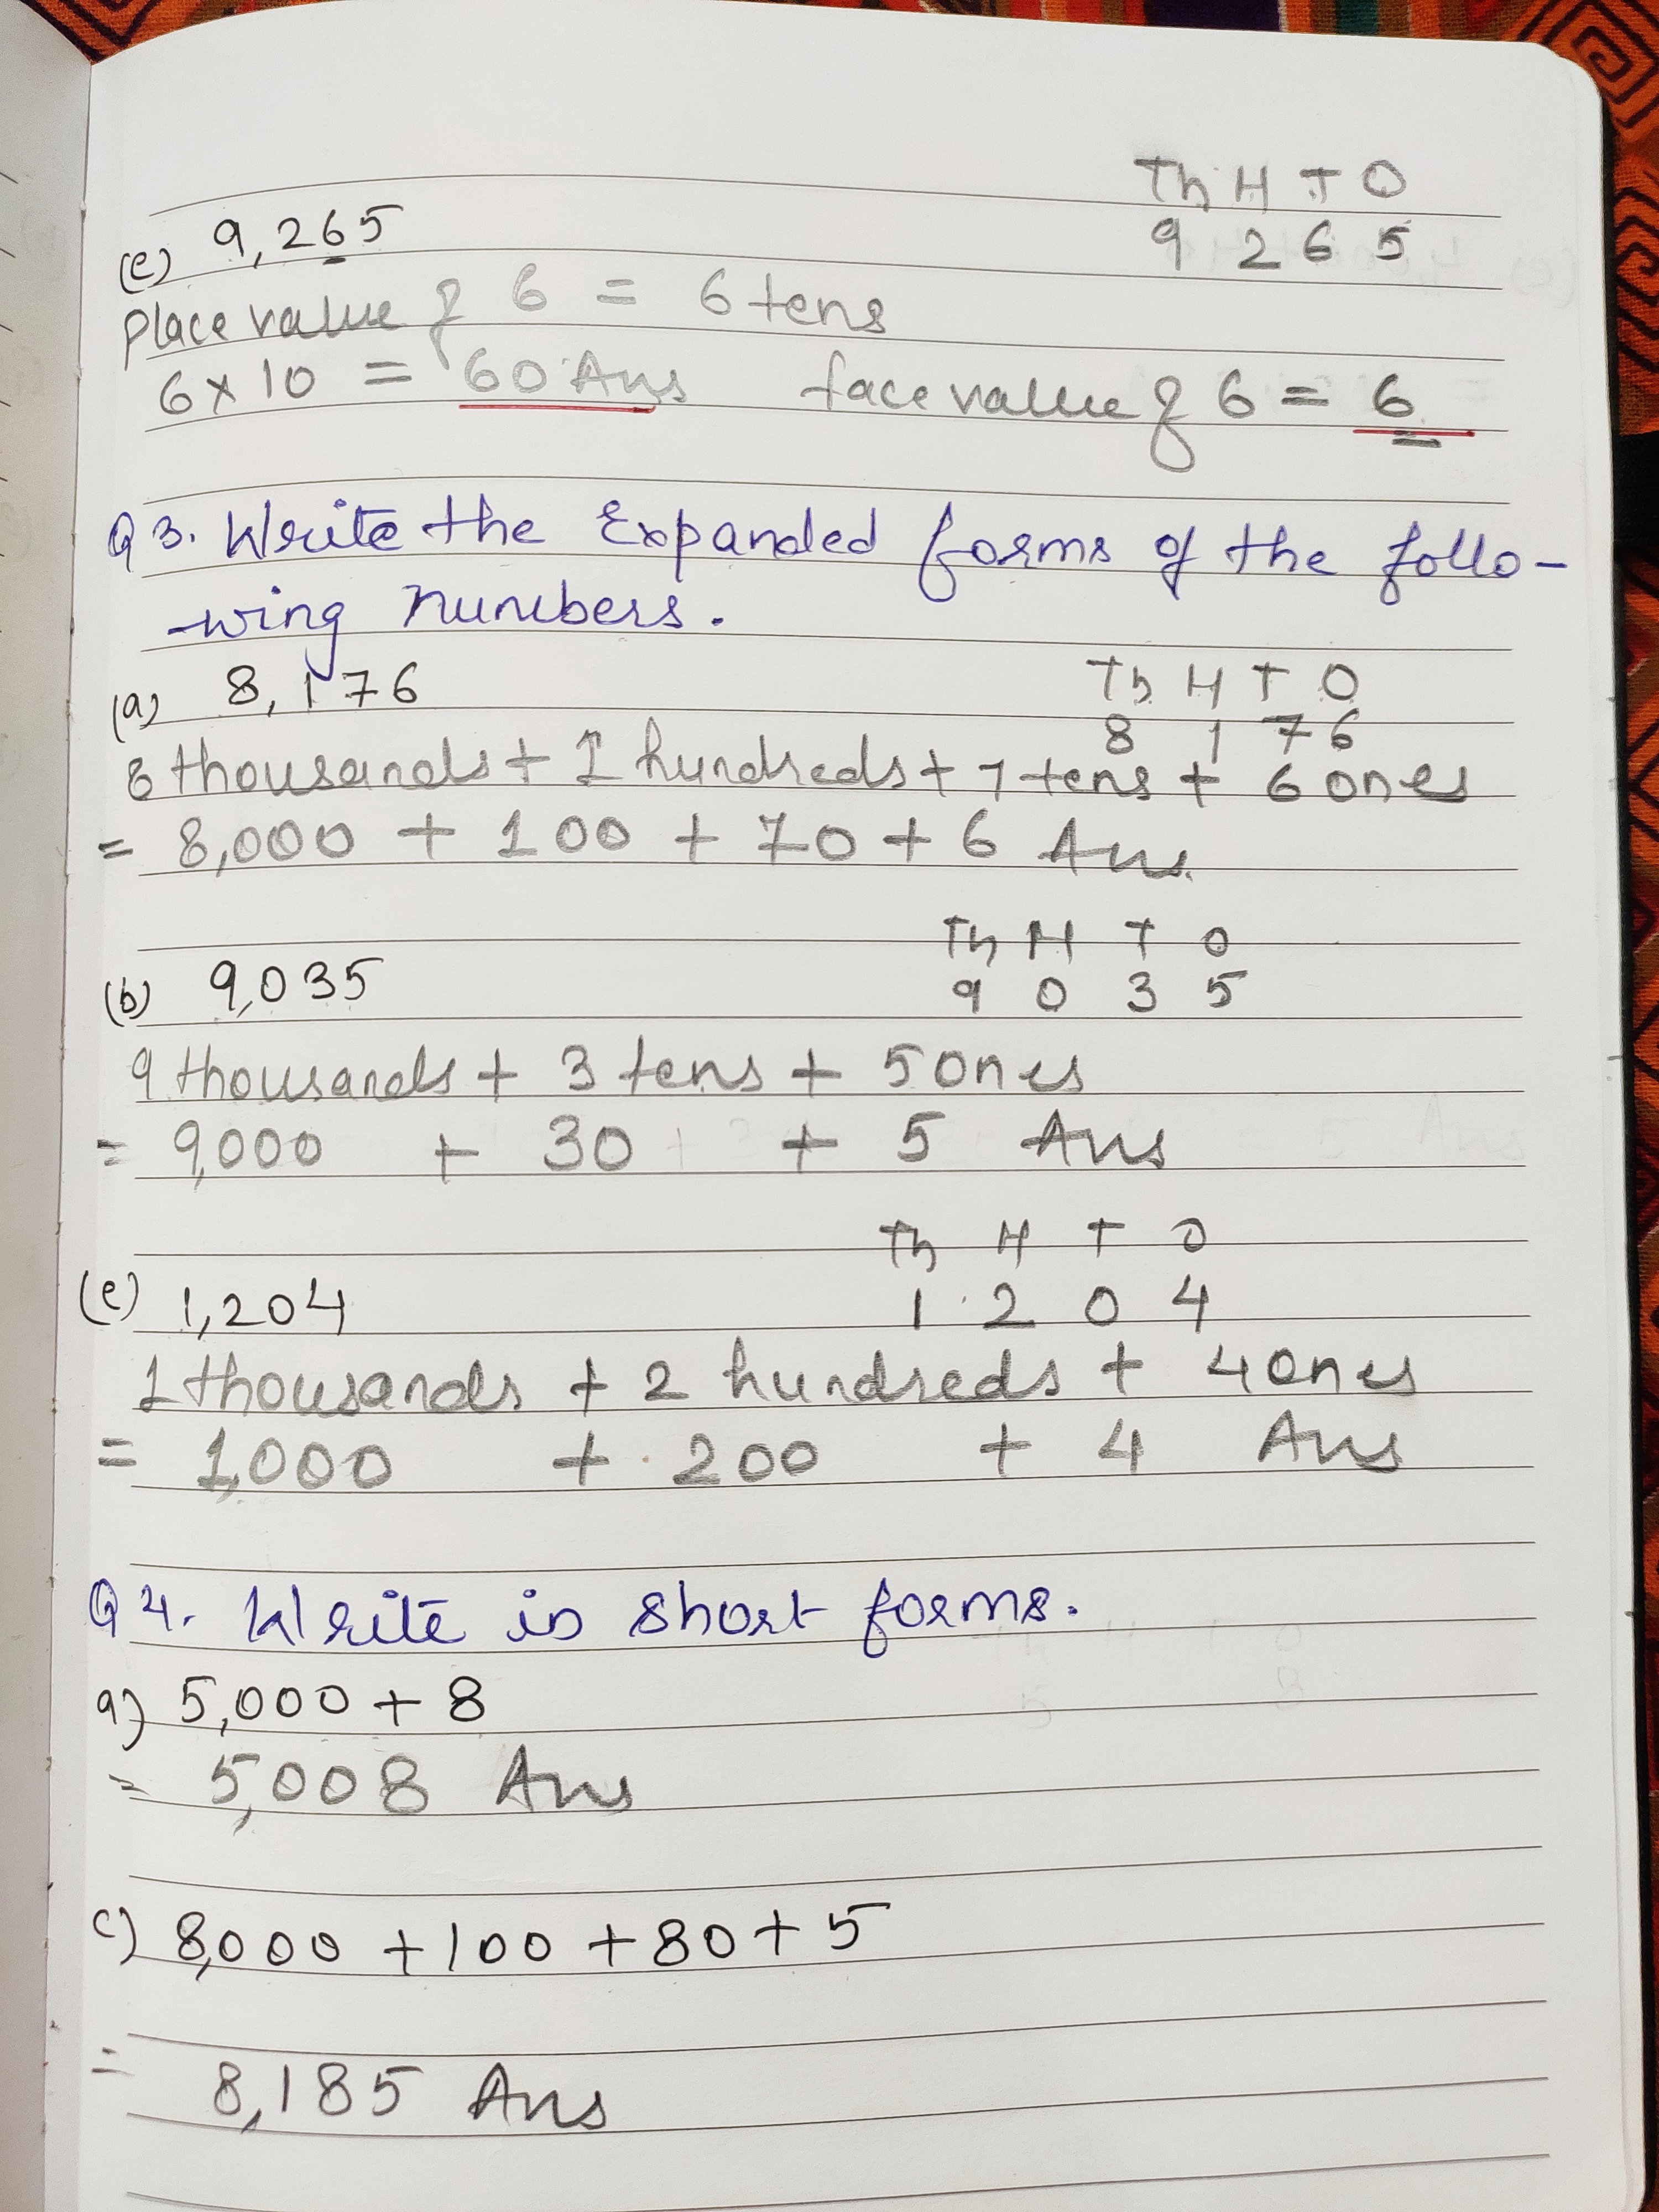 Th H T O
(e) 9,265
9 2 6 5
Place value of 6 = 6 tens
6 x 10 = 60 Ans face value of 6 = 6
Q 3. Write the Expanded forms of the follo-
-wing numbers.
(a) 8,176
Th H T O
8 1 7 6
8 thousands + 1 hundreds + 7 tens + 6 ones
= 8,000 + 100 + 70 + 6 Ans.
Th H T O
(b) 9,035
9 0 3 5
9 thousands + 3 tens + 5 ones
= 9,000 + 30 + 5 Ans
Th H T O
(e) 1,204
1 2 0 4
1 thousands + 2 hundreds + 4 ones
= 1,000 + 200 + 4 Ans
Q 4. Write in short forms.
a) 5,000 + 8
= 5,008 Ans
c) 8,000 + 100 + 80 + 5
= 8,185 Ans